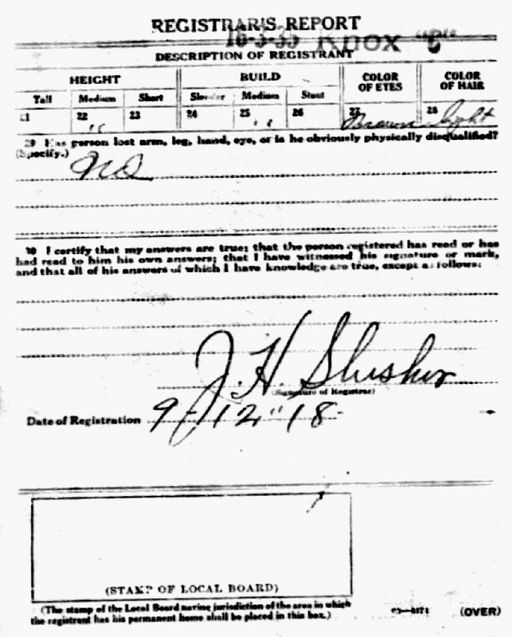 REGISTRAR'S REPORT
16-3-35 Knox "B"
DESCRIPTION OF REGISTRANT
HEIGHT BUILD COLOR OF EYES COLOR OF HAIR
Tall Medium Short Slender Medium Stout
21 22 23 24 25 26 27 28
" " Brown Light
29 Has person lost arm, leg, hand, eye, or is he obviously physically disqualified?
(Specify.) No
30 I certify that my answers are true; that the person registered has read or has
had read to him his own answers; that I have witnessed his signature or mark,
and that all of his answers of which I have knowledge are true, except as follows:
J. H. Slusher
(Signature of Registrar)
Date of Registration 9-12-18
(STAMP OF LOCAL BOARD)
(The stamp of the Local Board having jurisdiction of the area in which
the registrant has his permanent home shall be placed in this box.)
(OVER)